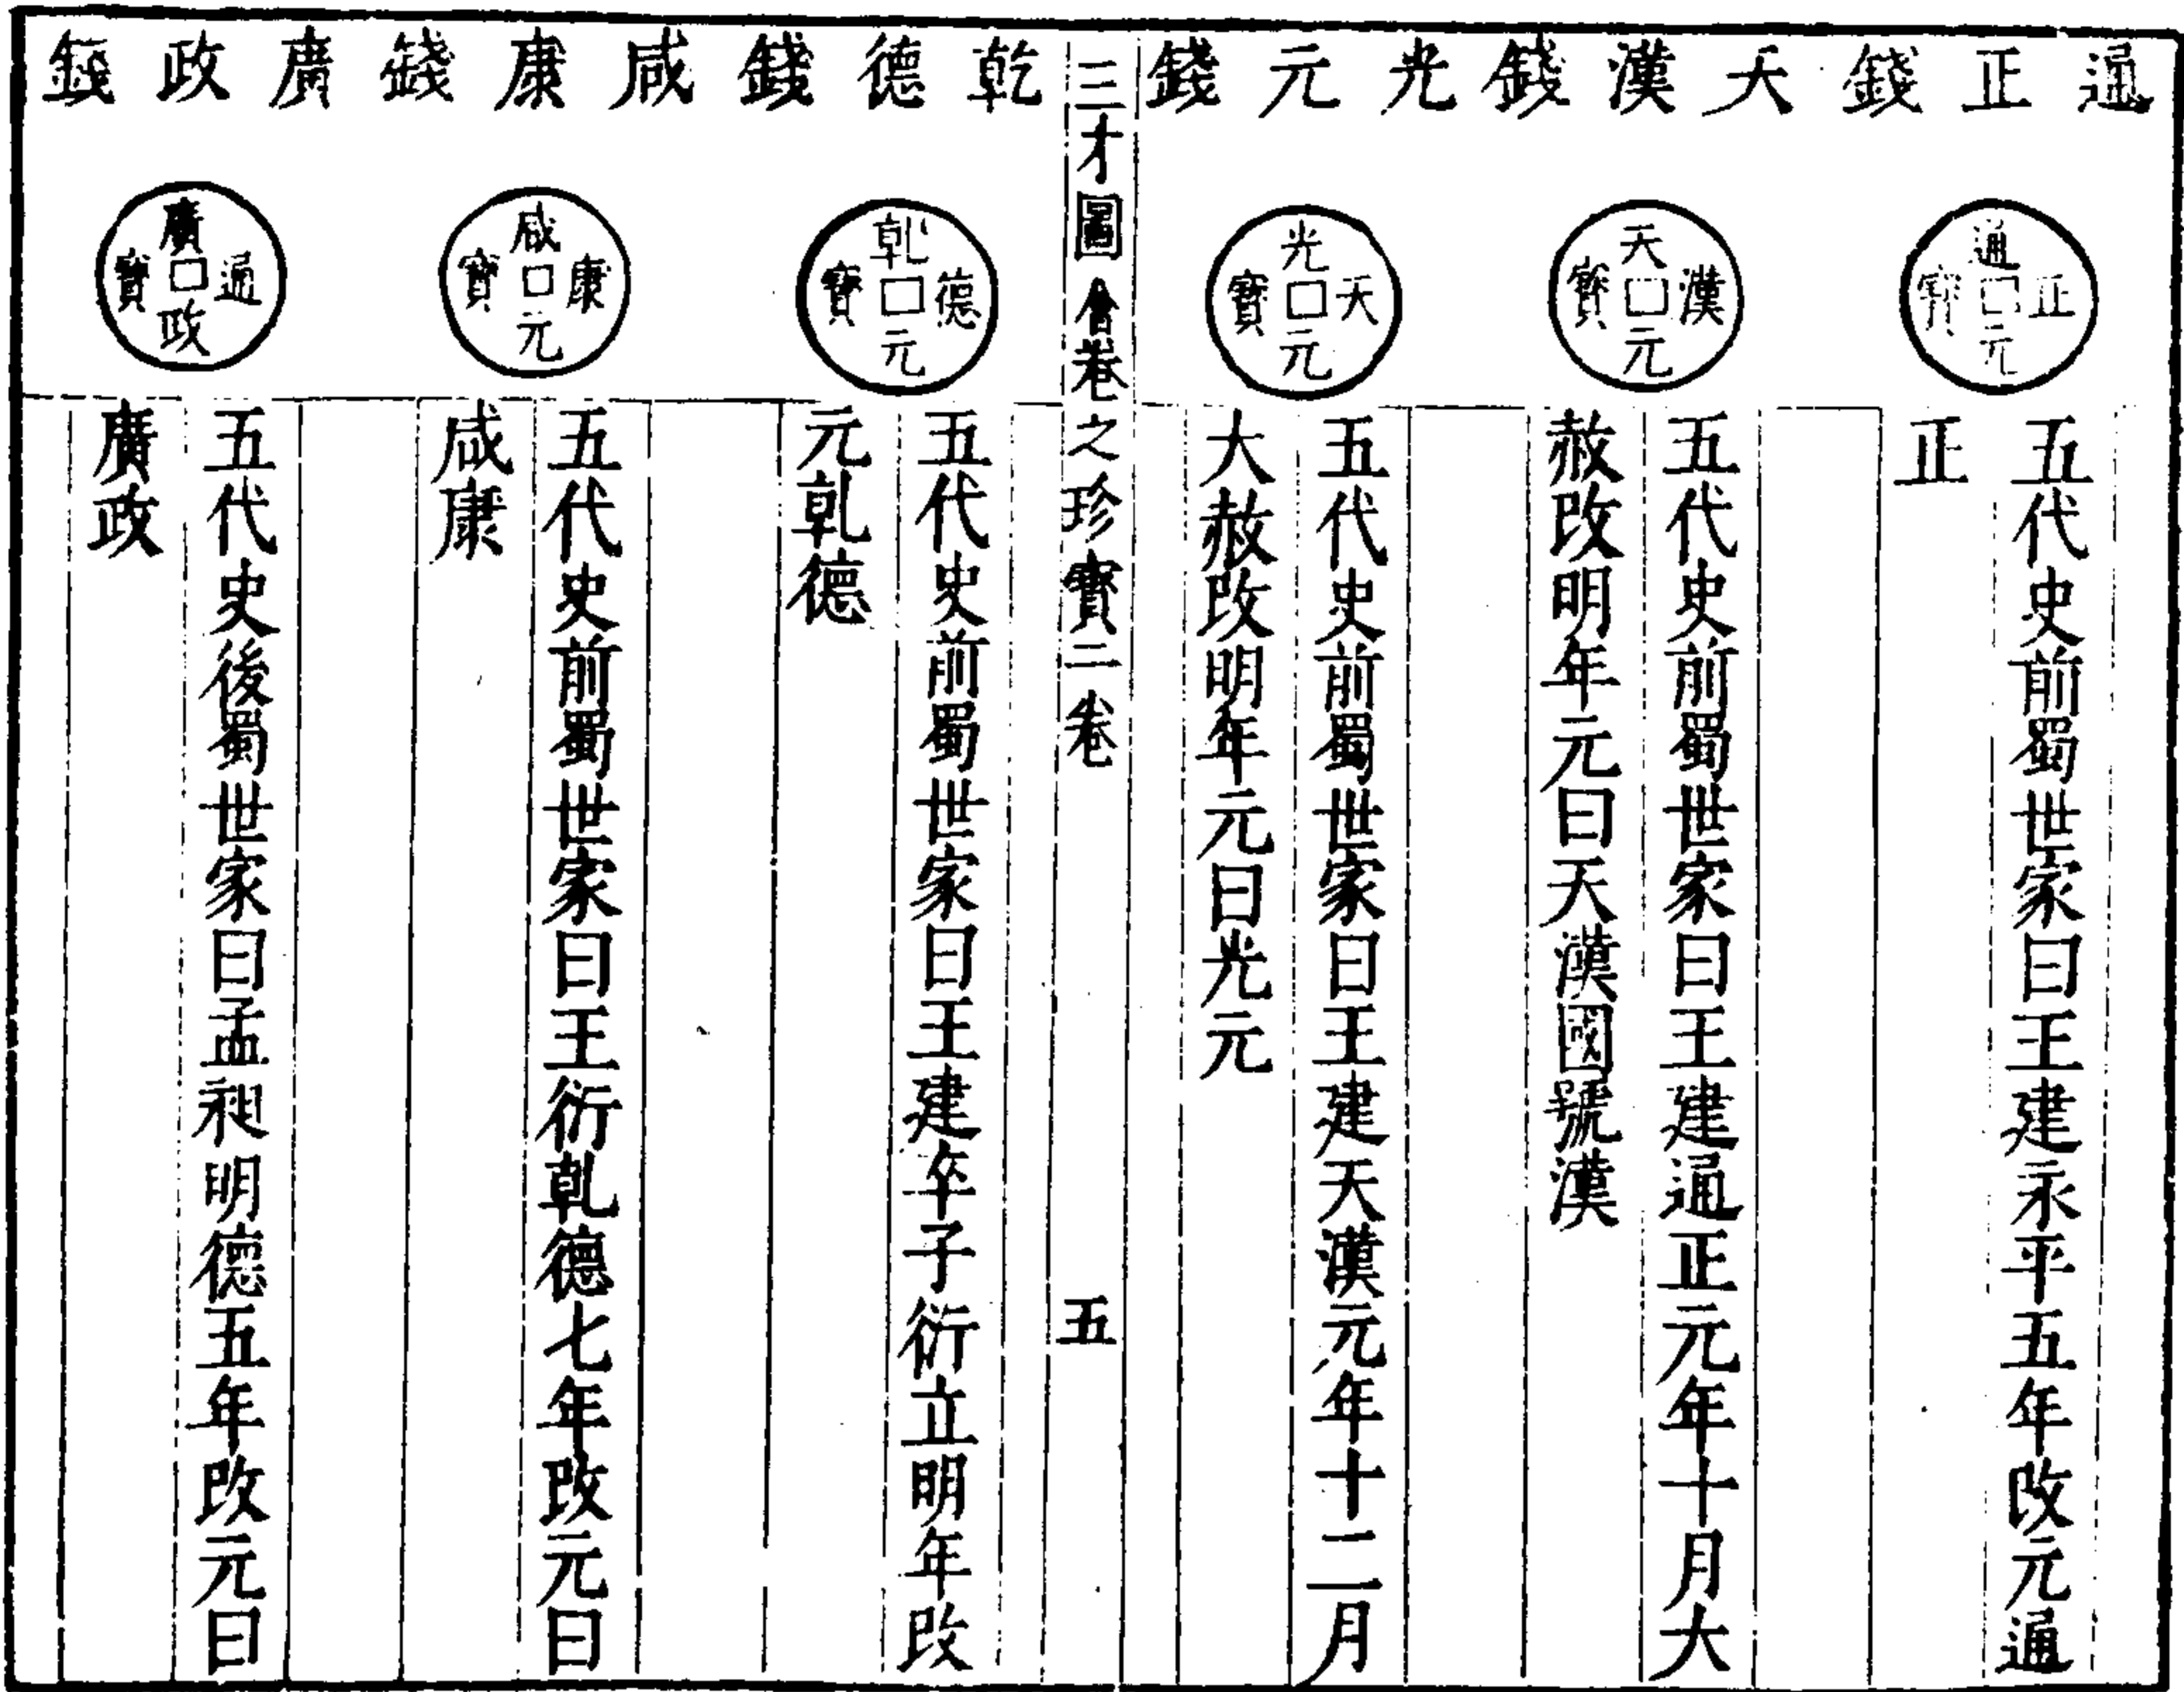 通正錢
通正元寶
五代史前蜀世家曰王建永平五年改元通
正
天漢錢
天漢元寶
五代史前蜀世家曰王建通正元年十月大
赦改明年元曰天漢國號漢
光元錢
光天元寶
五代史前蜀世家曰王建天漢元年十二月
大赦改明年元曰光元
三才圖會卷之珍寶二卷
五
乾德錢
乹德元寶
五代史前蜀世家曰王建卒子衍立明年改
元乹德
咸康錢
咸康元寶
五代史前蜀世家曰王衍乹德七年改元曰
咸康
廣政錢
廣政通寶
五代史後蜀世家曰孟昶明德五年改元曰
廣政